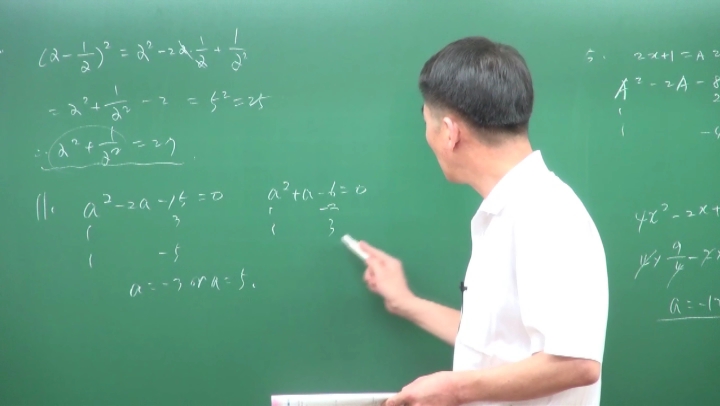 (2-1/2)² = 2²-2·2·1/2+1/2²
= 2²+1/2²-2 = 5² = 25
∴ 2²+1/2² = 27
11. a²-2a-15=0
1 3
1 -5
a=-3 or a=5.
a²+a-6=0
1 -2
1 3
5. 2x+1=A
A²-2A-8
1
1
4x²-2x+
9/4
a=-1